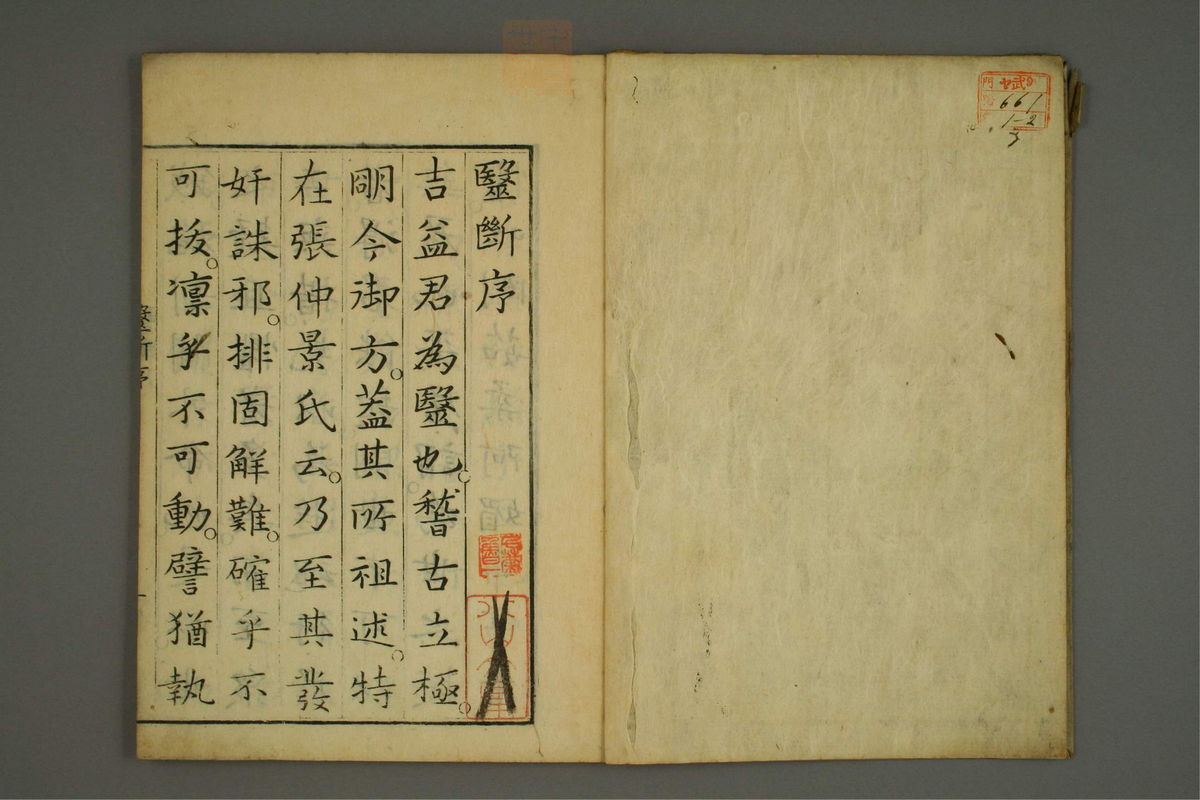 醫斷序
吉益君為醫也。稽古立極。
明今御方。葢其所祖述。特
在張仲景氏云。乃至其發
奸誅邪。排固解難。確乎不
可拔。凛乎不可動。譬猶執
醫斷序
門
661
1-2
3